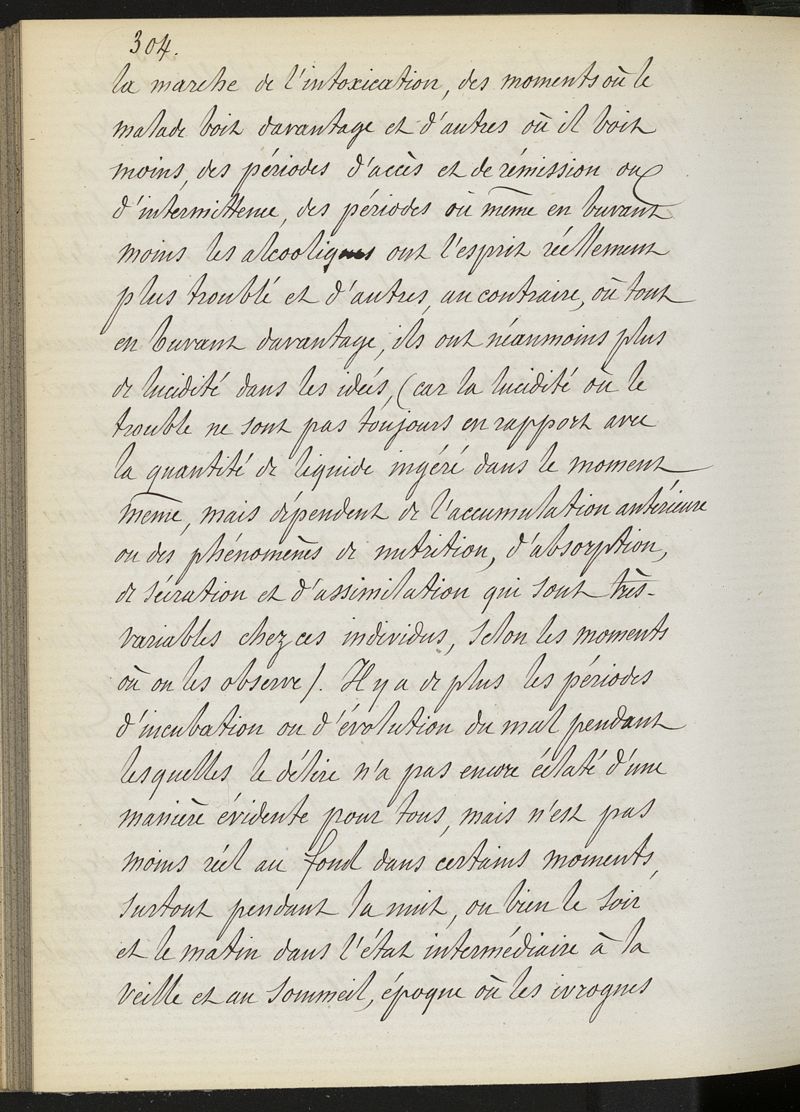 304.
la marche de l'intoxication, des moments où le
malade boit davantage et d'autres où il boit
moins, des périodes d'accès et de rémission ou
d'intermittence, des périodes où même en buvant
moins les alcooliques ont l'esprit réellement
plus troublé et d'autres, au contraire, où tout
en buvant davantage, ils ont néanmoins plus
de lucidité dans les idées, (car la lucidité ou le
trouble ne sont pas toujours en rapport avec
la quantité de liquide ingéré dans le moment
même, mais dépendent de l'accumulation antérieure
ou des phénomènes de nutrition, d'absorption,
de sécration et d'assimilation qui sont très-
variables chez ces individus, selon les moments
où on les observe). Il y a de plus les périodes
d'incubation ou d'évolution du mal pendant
lesquelles le délire n'a pas encore éclaté d'une
manière évidente pour tous, mais n'est pas
moins réel au fond dans certains moments,
surtout pendant la nuit, ou bien le soir
et le matin dans l'état intermédiaire à la
veille et au sommeil, époque où les ivrognes